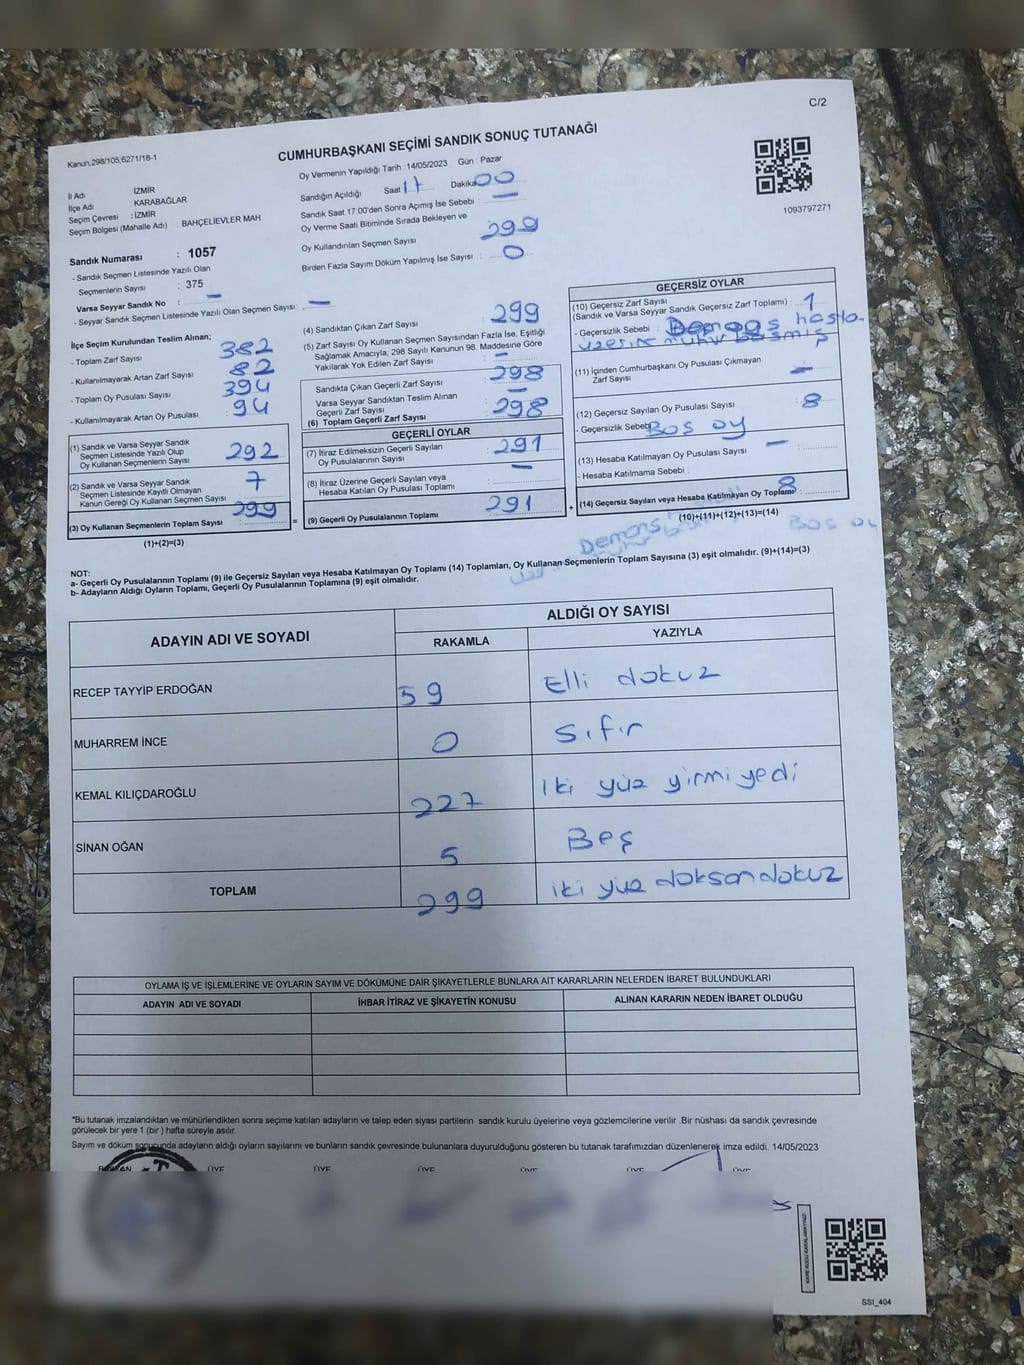 C/2
Kanun,298/105;6271/18-1
CUMHURBAŞKANI SEÇİMİ SANDIK SONUÇ TUTANAĞI
Oy Vermenin Yapıldığı Tarih : 14/05/2023 Gün : Pazar
İl Adı : İZMİR
İlçe Adı : KARABAĞLAR
Seçim Çevresi : İZMİR
Seçim Bölgesi (Mahalle Adı) : BAHÇELİEVLER MAH.
Sandığın Açıldığı Saat 17 Dakika 00
Sandık Saat 17:00'den Sonra Açımış İse Sebebi : —
Oy Verme Saati Bitiminde Sırada Bekleyen ve
Oy Kullandırılan Seçmen Sayısı : 299
Birden Fazla Sayım Döküm Yapılmış İse Sayısı : 0
1093797271
Sandık Numarası : 1057
- Sandık Seçmen Listesinde Yazılı Olan
Seçmenlerin Sayısı : 375
Varsa Seyyar Sandık No : —
- Seyyar Sandık Seçmen Listesinde Yazılı Olan Seçmen Sayısı: —
İlçe Seçim Kurulundan Teslim Alınan;
- Toplam Zarf Sayısı : 382
- Kullanılmayarak Artan Zarf Sayısı : 82
- Toplam Oy Pusulası Sayısı : 394
- Kullanılmayarak Artan Oy Pusulası : 94
(1) Sandık ve Varsa Seyyar Sandık
Seçmen Listesinde Yazılı Olup
Oy Kullanan Seçmenlerin Sayısı 292
(2) Sandık ve Varsa Seyyar Sandık
Seçmen Listesinde Kayıtlı Olmayan
Kanun Gereği Oy Kullanan Seçmen Sayısı 7
(3) Oy Kullanan Seçmenlerin Toplam Sayısı 299
(1)+(2)=(3)
(4) Sandıktan Çıkan Zarf Sayısı : 299
(5) Zarf Sayısı Oy Kullanan Seçmen Sayısından Fazla İse, Eşitliği
Sağlamak Amacıyla, 298 Sayılı Kanunun 98. Maddesine Göre
Yakılarak Yok Edilen Zarf Sayısı : —
Sandıkta Çıkan Geçerli Zarf Sayısı : 298
Varsa Seyyar Sandıktan Teslim Alınan
Geçerli Zarf Sayısı : —
(6) Toplam Geçerli Zarf Sayısı : 298
GEÇERLİ OYLAR
(7) İtiraz Edilmeksizin Geçerli Sayılan
Oy Pusulalarının Sayısı : 291
(8) İtiraz Üzerine Geçerli Sayılan veya
Hesaba Katılan Oy Pusulası Toplamı : —
= (9) Geçerli Oy Pusulalarının Toplamı 291
GEÇERSİZ OYLAR
(10) Geçersiz Zarf Sayısı
(Sandık ve Varsa Seyyar Sandık Geçersiz Zarf Toplamı) : 1
- Geçersizlik Sebebi :
(11) İçinden Cumhurbaşkanı Oy Pusulası Çıkmayan
Zarf Sayısı : —
(12) Geçersiz Sayılan Oy Pusulası Sayısı : 8
- Geçersizlik Sebebi: Boş oy
(13) Hesaba Katılmayan Oy Pusulası Sayısı : —
- Hesaba Katılmama Sebebi :
+ (14) Geçersiz Sayılan veya Hesaba Katılmayan Oy Toplamı : 8
(10)+(11)+(12)+(13)=(14)
NOT:
a- Geçerli Oy Pusulalarının Toplamı (9) ile Geçersiz Sayılan veya Hesaba Katılmayan Oy Toplamı (14) Toplamları, Oy Kullanan Seçmenlerin Toplam Sayısına (3) eşit olmalıdır. (9)+(14)=(3)
b- Adayların Aldığı Oyların Toplamı, Geçerli Oy Pusulalarının Toplamına (9) eşit olmalıdır.
ADAYIN ADI VE SOYADI ALDIĞI OY SAYISI
RAKAMLA YAZIYLA
RECEP TAYYİP ERDOĞAN 59 Elli dokuz
MUHARREM İNCE 0 Sıfır
KEMAL KILIÇDAROĞLU 227 İki yüz yirmi yedi
SİNAN OĞAN 5 Beş
TOPLAM 299 iki yüz doksan dokuz
OYLAMA İŞ VE İŞLEMLERİNE VE OYLARIN SAYIM VE DÖKÜMÜNE DAİR ŞİKAYETLERLE BUNLARA AİT KARARLARIN NELERDEN İBARET BULUNDUKLARI
ADAYIN ADI VE SOYADI İHBAR İTİRAZ VE ŞİKAYETİN KONUSU ALINAN KARARIN NEDEN İBARET OLDUĞU
*Bu tutanak imzalandıktan ve mühürlendikten sonra seçime katılan adayların ve talep eden siyasi partilerin sandık kurulu üyelerine veya gözlemcilerine verilir .Bir nüshası da sandık çevresinde
görülecek bir yere 1 (bir ) hafta süreyle asılır.
Sayım ve döküm sonucunda adayların aldığı oyların sayılarını ve bunların sandık çevresinde bulunanlara duyurulduğunu gösteren bu tutanak tarafımızdan düzenlenerek imza edildi. 14/05/2023
ÜYE ÜYE ÜYE ÜYE ÜYE ÜYE
SSI_404